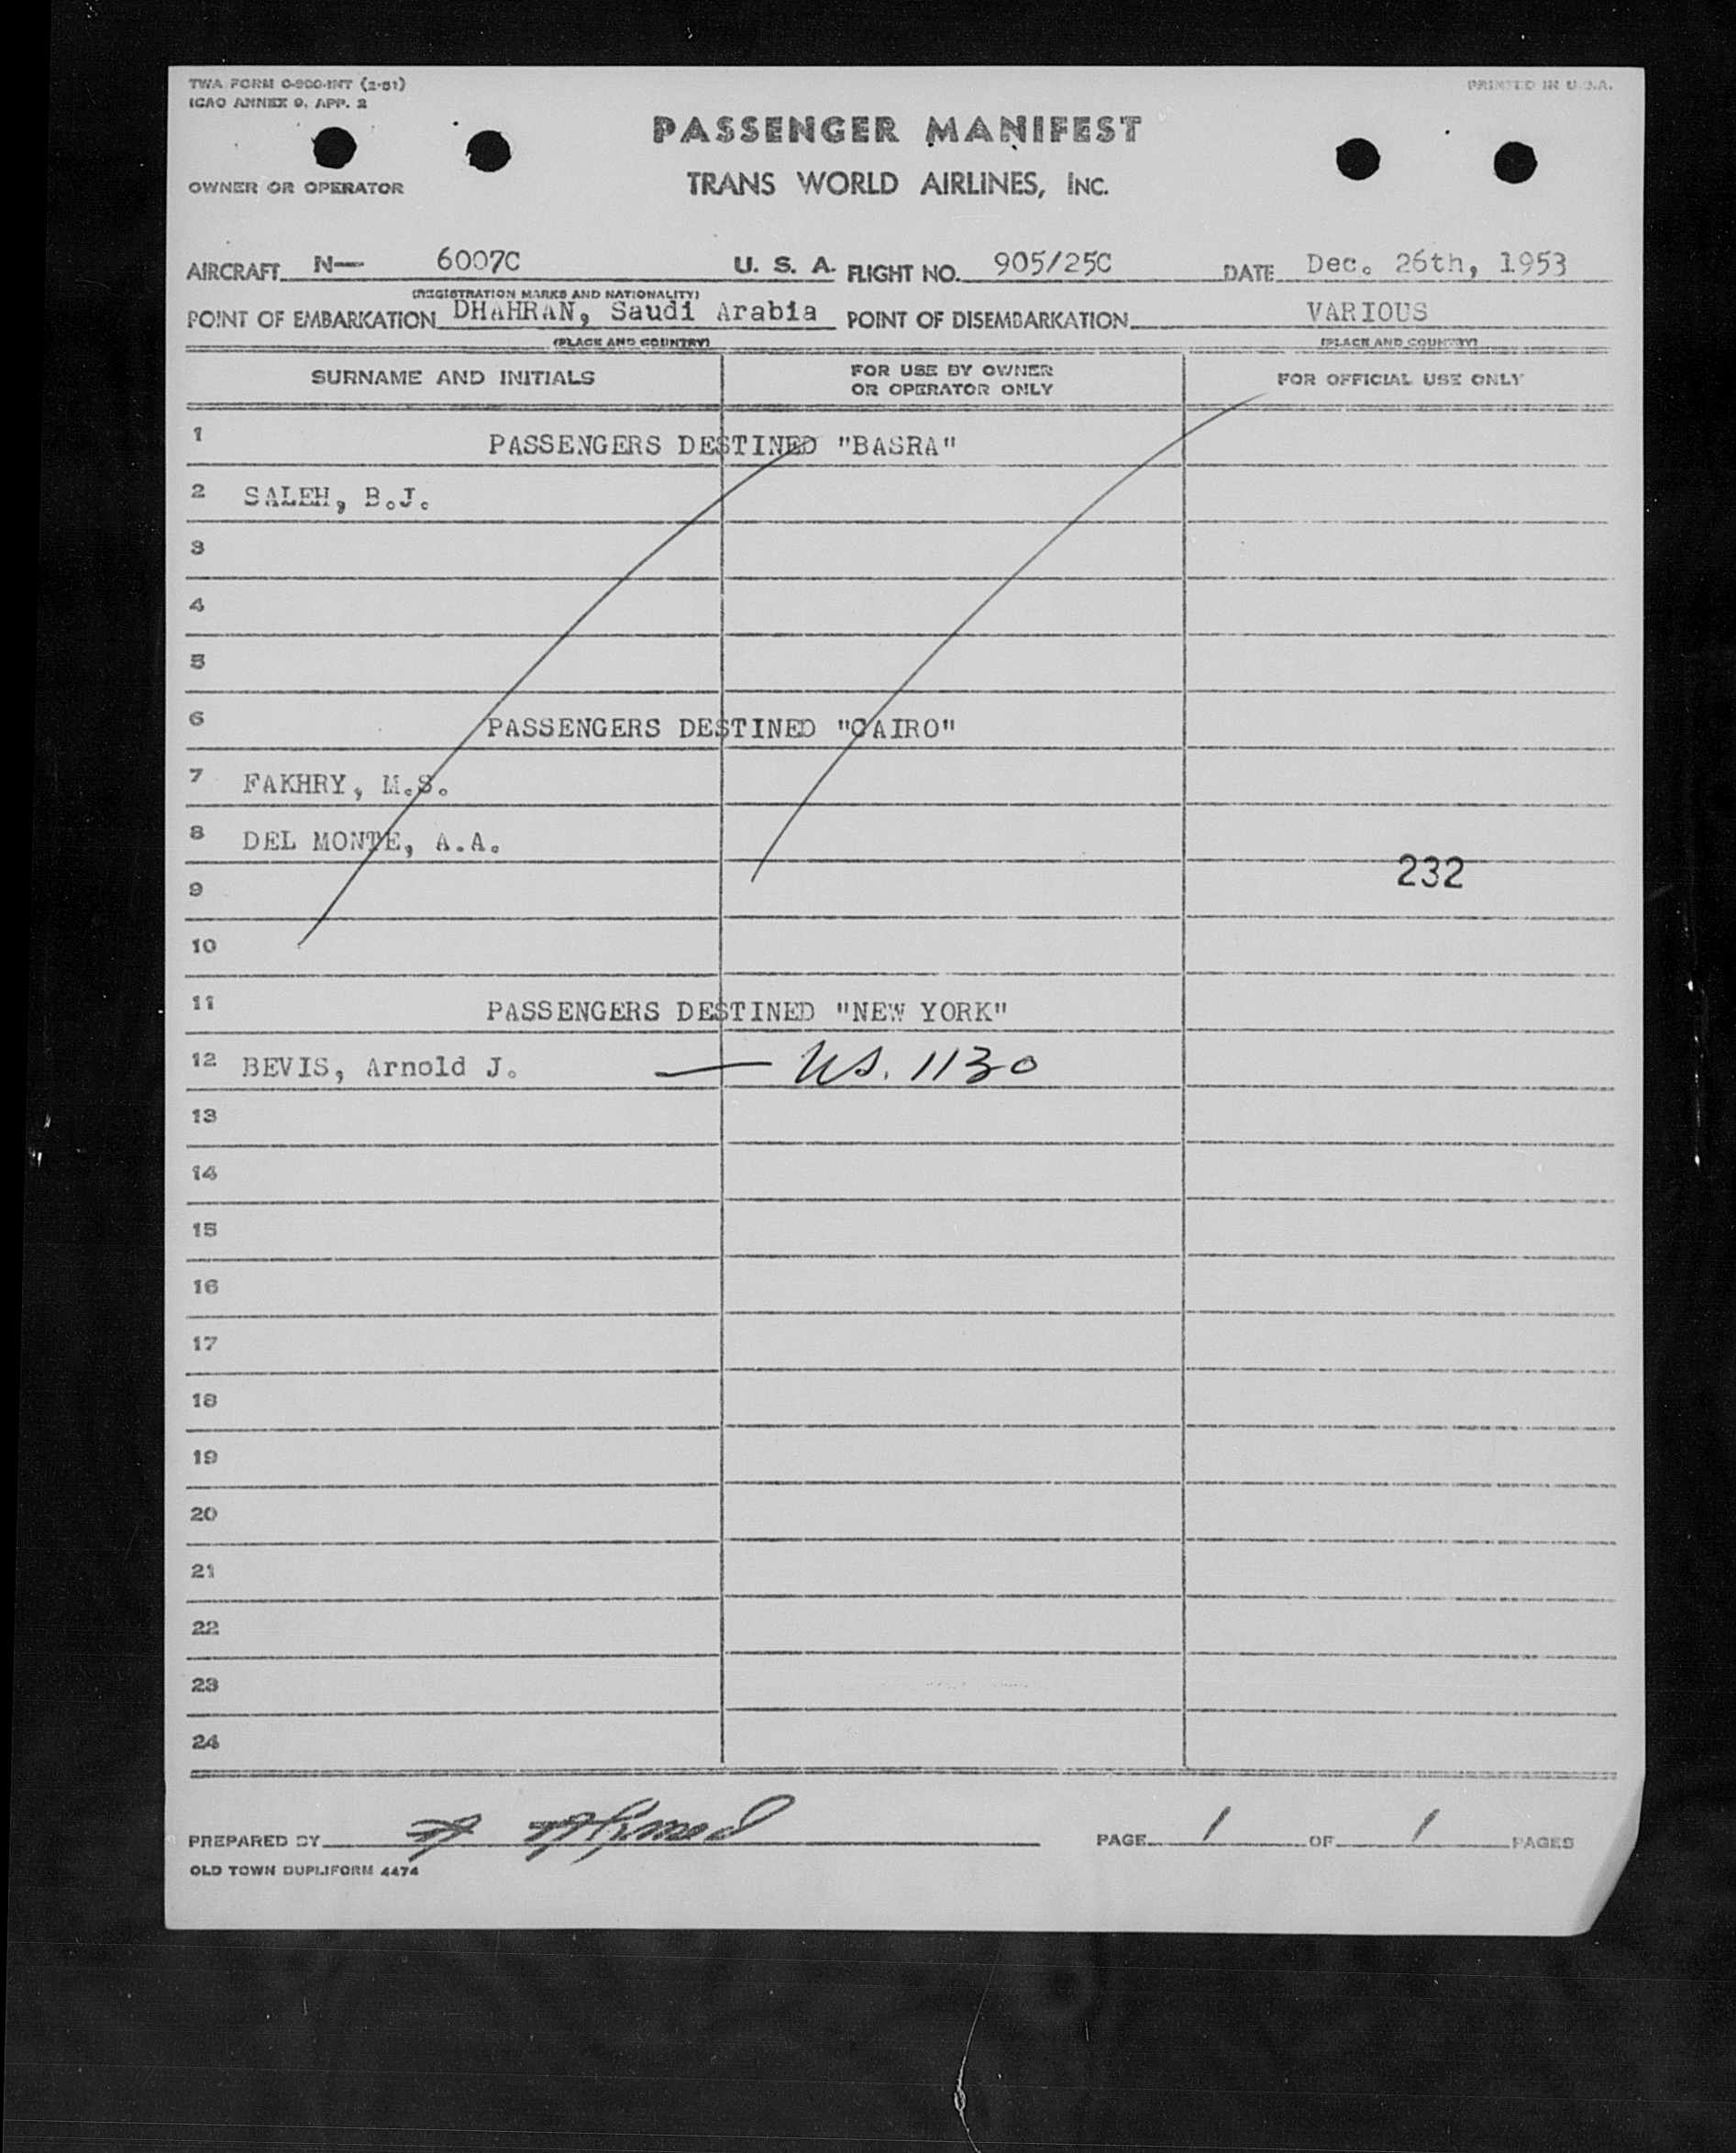 TWA FORM O-900-INT (2-51)
PRINTED IN U.S.A.
ICAO ANNEX 9, APP. 2
PASSENGER MANIFEST
OWNER OR OPERATOR
TRANS WORLD AIRLINES, INC.
AIRCRAFT N— 6007C U. S. A. FLIGHT NO. 905/25C DATE Dec. 26th, 1953
(REGISTRATION MARKS AND NATIONALITY)
POINT OF EMBARKATION DHAHRAN, Saudi Arabia POINT OF DISEMBARKATION VARIOUS
(PLACE AND COUNTRY) (PLACE AND COUNTRY)
SURNAME AND INITIALS FOR USE BY OWNER OR OPERATOR ONLY FOR OFFICIAL USE ONLY
1 PASSENGERS DESTINED "BASRA"
2 SALEH, B.J.
3
4
5
6 PASSENGERS DESTINED "CAIRO"
7 FAKHRY, M.S.
8 DEL MONTE, A.A.
232
9
10
11 PASSENGERS DESTINED "NEW YORK"
12 BEVIS, Arnold J. — US. 1130
13
14
15
16
17
18
19
20
21
22
23
24
PREPARED BY Ahmed PAGE 1 OF 1 PAGES
OLD TOWN DUPLIFORM 4474